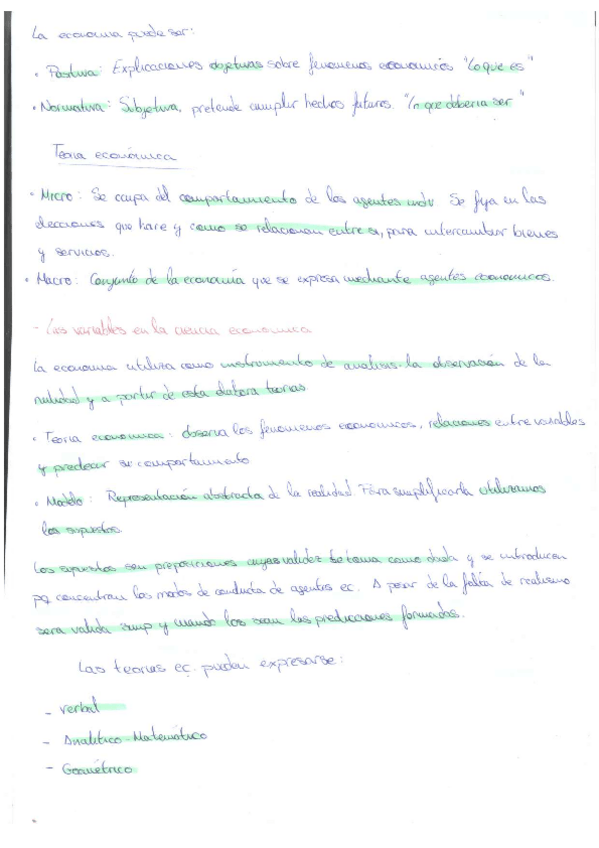 La economia puede ser:
• Positiva: Explicaciones objetivas sobre fenomenos economicos "Lo que es"
• Normativa: Subjetiva, pretende cumplir hechos futuros. "Lo que deberia ser"
Teoria económica
• Micro: Se ocupa del comportamiento de los agentes indv Se fija en las
decisiones que hace y como se relacionan entre si, para intercambiar bienes
y servicios.
• Macro: Conjunto de la economía que se expresa mediante agentes economicos.
- Las variables en la ciencia economica
La economia utiliza como instrumento de analisis la observación de la
realidad y a partir de esta elabora teorias
• Teoria economica: observa los fenomenos economicos, relaciones entre variables
y predecir su comportamiento
• Modelo: Representación abstracta de la realidad. Para simplificarla utilizamos
los supuestos.
Los supuestos son preposiciones cuya validez se toma como dada y se introducen
pq concentran los modos de conducta de agentes ec. A pesar de la falta de realismo
sera valida siemp y cuando los sean las predicciones formadas.
Las teorias ec. pueden expresarse:
- verbal
- Analitico-Matemático
- Geométrico